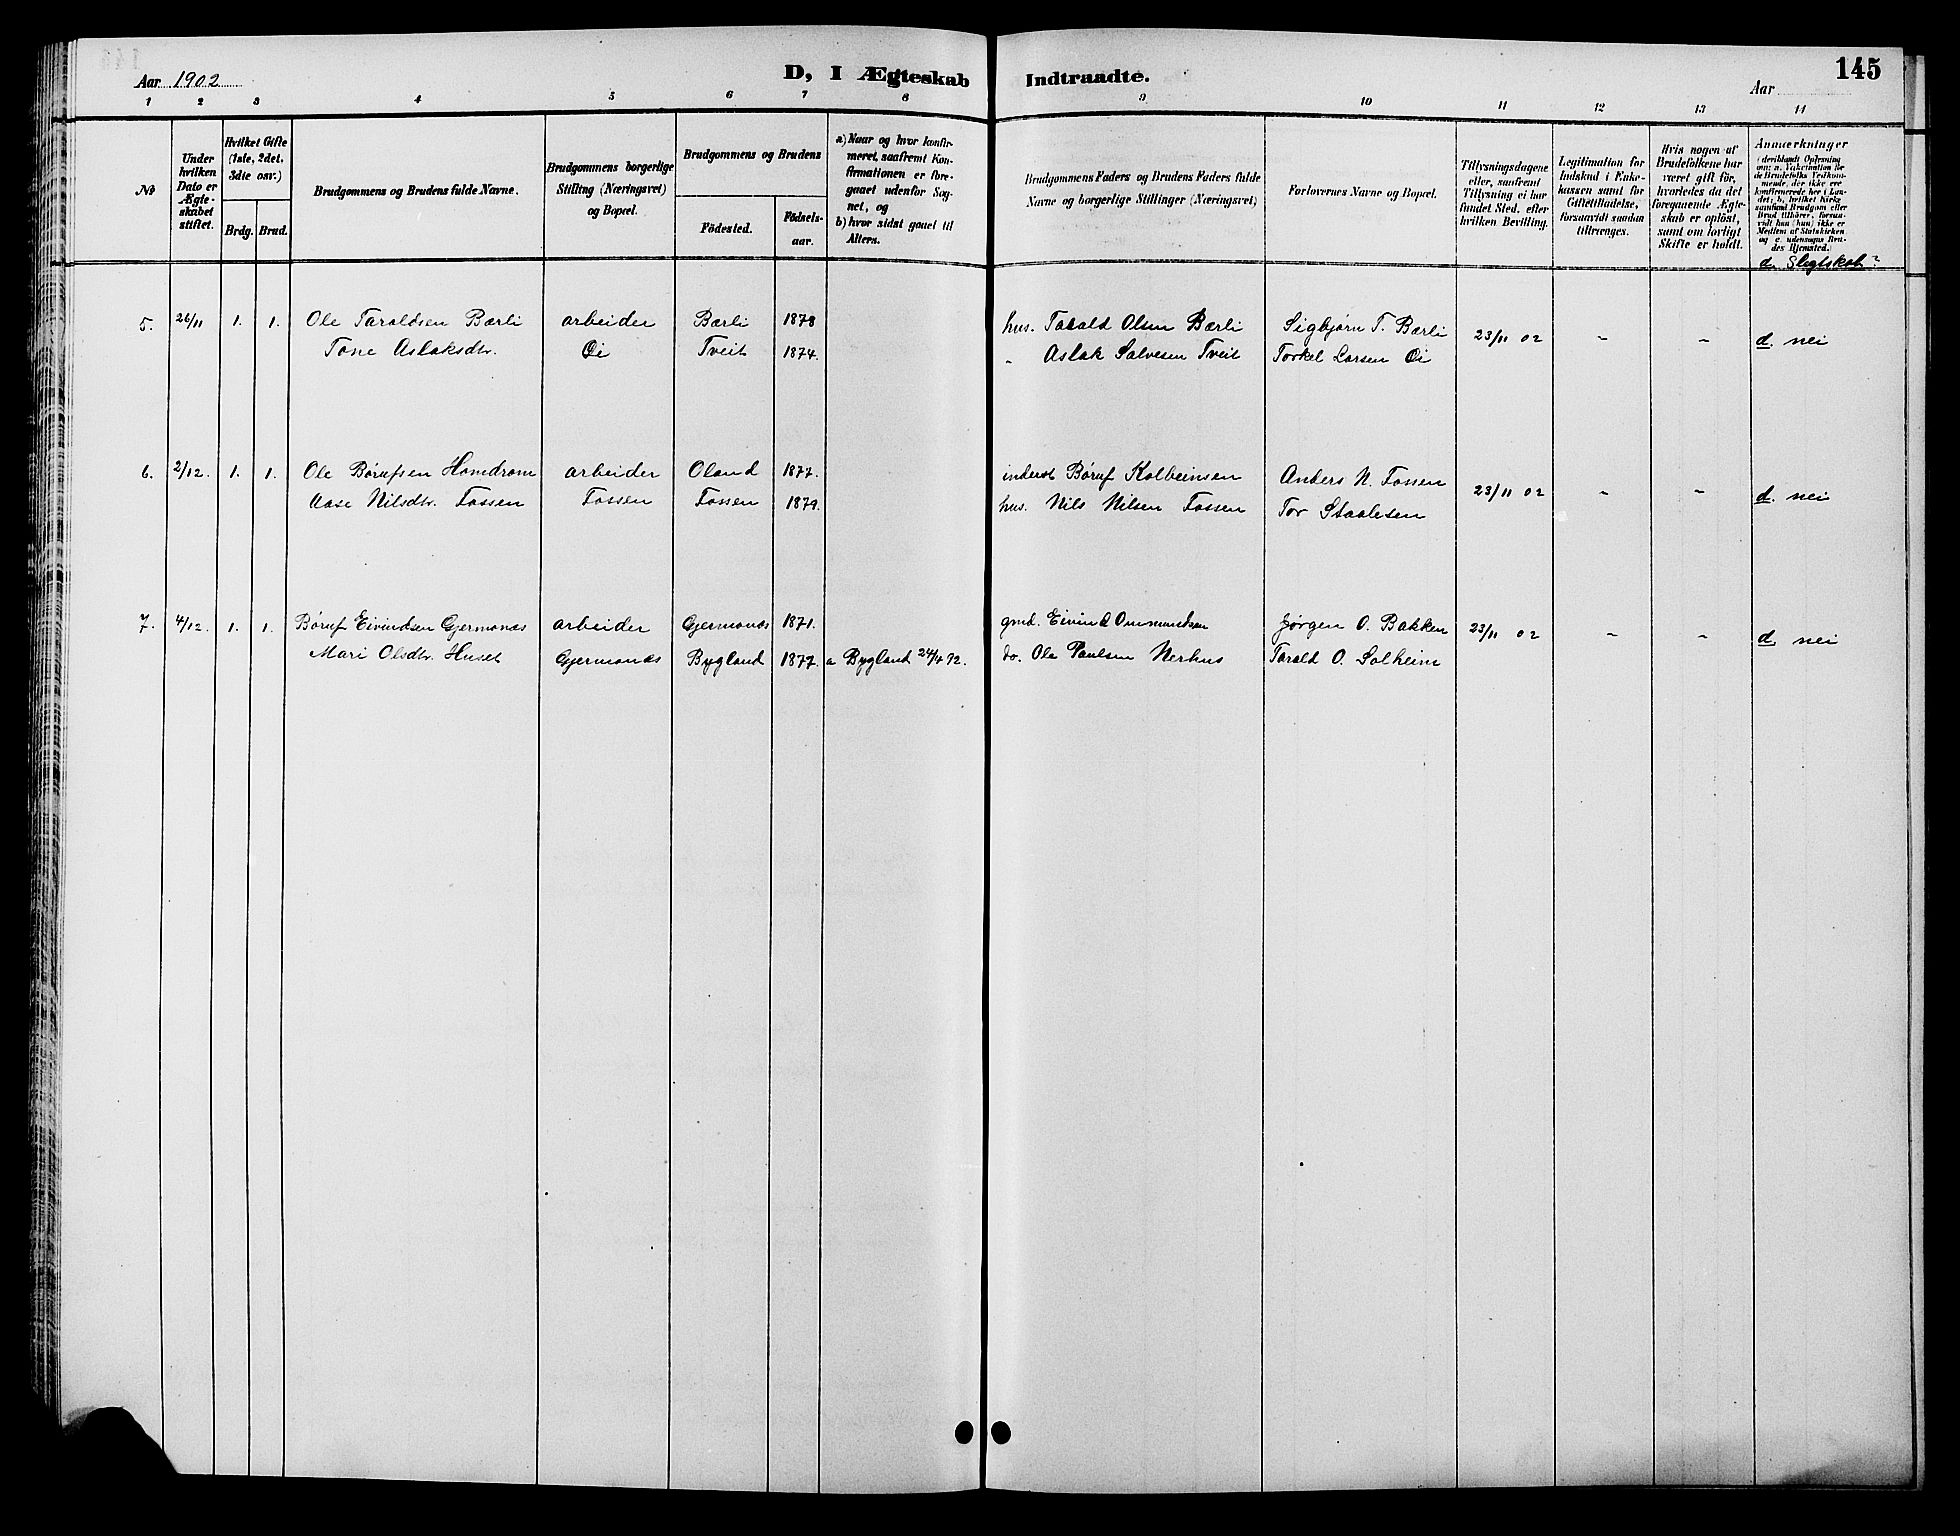 145
Aar 1902
D, I Ægteskab Indtraadte.
Aar
1 2 3 4 5 6 7 8 9 10 11 12 13 14
No
Under hvilken Dato er Ægteskabet stiftet.
Hvilket Gifte (1ste, 2det, 3die osv.)
Brdg. Brud.
Brudgommens og Brudens fulde Navne.
Brudgommens borgerlige Stilling (Næringsvei) og Bopæl.
Brudgommens og Brudens
Födested.
Födselsaar.
a) Naar og hvor konfirmeret, saafremt Konfirmationen er foregaaet udenfor Sognet, og
b) hvor sidst gaaet til Alters.
Brudgommens Faders og Brudens Faders fulde Navne og borgerlige Stillinger (Næringsvei)
Forlovernes Navne og Bopæl.
Tillysningsdagene eller, saafremt Tillysning ei har fundet Sted, efter hvilken Bevilling.
Legitimation for Indskud i Enkekassen samt for Giftetilladelse, forsaavidt saadan tiltrænges.
Hvis nogen af Brudefolkene har været gift før, hvorledes da det foregaaende Ægteskab er oplöst, samt om lovligt Skifte er holdt.
Anmærkninger
(deriblandt Oplysning om: a. Vakcination for de Brudefolks Vedkommende, der ikke ere konfirmerede her i Landet; b. hvilket Kirkesamfund Brudgom eller Brud tilhører, forsaavidt han (hun) ikke er Medlem af Statskirken og c. udensogns Brudes Hjemsted.
d. Slegtskab?
5. 26/11 1. 1. Ole Taraldsen Bærli arbeider Bærli 1878 hus. Tarald Olsen Bærli Sigbjørn T. Bærli 23/11 02 - - d. nei
Tone Aslaksdtr. Øi Tveit 1874. " Aslak Salvesen Tveit Torkel Larsen Øi
6. 2/12. 1. 1. Ole Børufsen Homdrom arbeider Oland 1877. inderst Børuf Kolbeinsen Anders N. Fossen 23/11 02 - - d. nei
Aase Nilsdtr. Fossen Fossen Fossen 1879. hus. Nils Nilsen Fossen Tor Staalesen
7. 4/12. 1. 1. Børuf Eivindsen Gjermonæs arbeider Gjermonæs 1871. gmd. Eivind Ommundsen Jørgen O. Bakken 23/11 02 - - d. nei
Mari Olsdtr. Huset Gjermonæs Bygland 1877. a Bygland 24/4 92. do. Ole Paulsen Nerhus Tarald O. Solheim